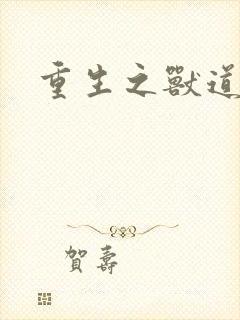 重生之獸道
賀壽